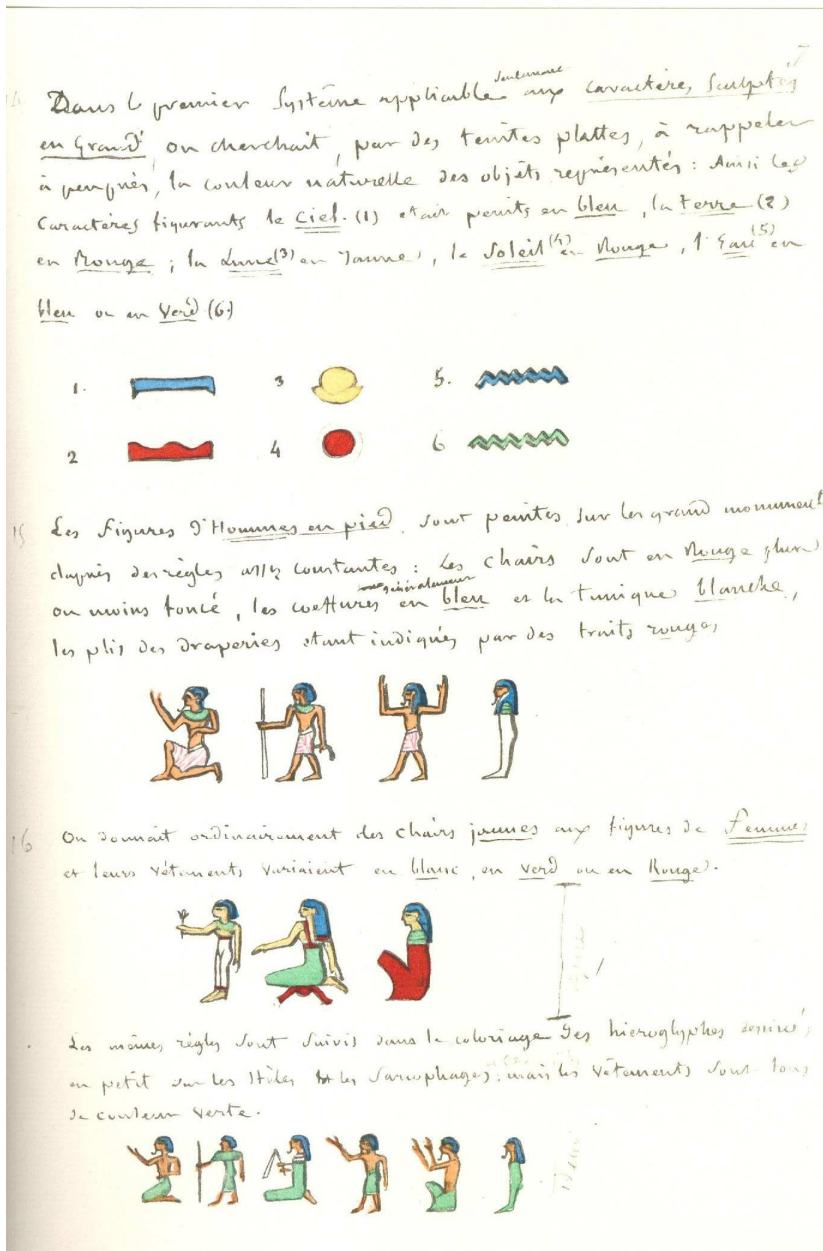 7
14 Dans le premier Système applicable seulement aux caractères sculptés
en Grand, on cherchait, par des teintes plattes, à rappeler
à peuprès, la couleur naturelle des objets représentés : Ainsi les
Caractères figurants le Ciel. (1) etait peints en bleu, la terre (2)
en Rouge ; la Lune (3) en Jaune, le Soleil (4) en Rouge, l'Eau (5) en
bleu ou en Verd (6.)
1. 3 5.
2 4 6
15 Les figures d'Hommes en pied, sont peintes sur les grand monument
daprès des règles assez constantes : Les chairs sont en Rouge plus
ou moins foncé, les coeffures généralement en bleu et la tunique blanche,
les plis des draperies etant indiqués par des traits rouges
16 On donnait ordinairement des chairs jaunes aux figures de femmes
et leurs vêtements variaient en blanc, en verd ou en Rouge.
Les mêmes règles sont suivis dans le coloriage des hieroglyphes dessinés
en petit sur les Stèles et les Sarcophages ; mais les vêtements sont tous
de couleur verte.